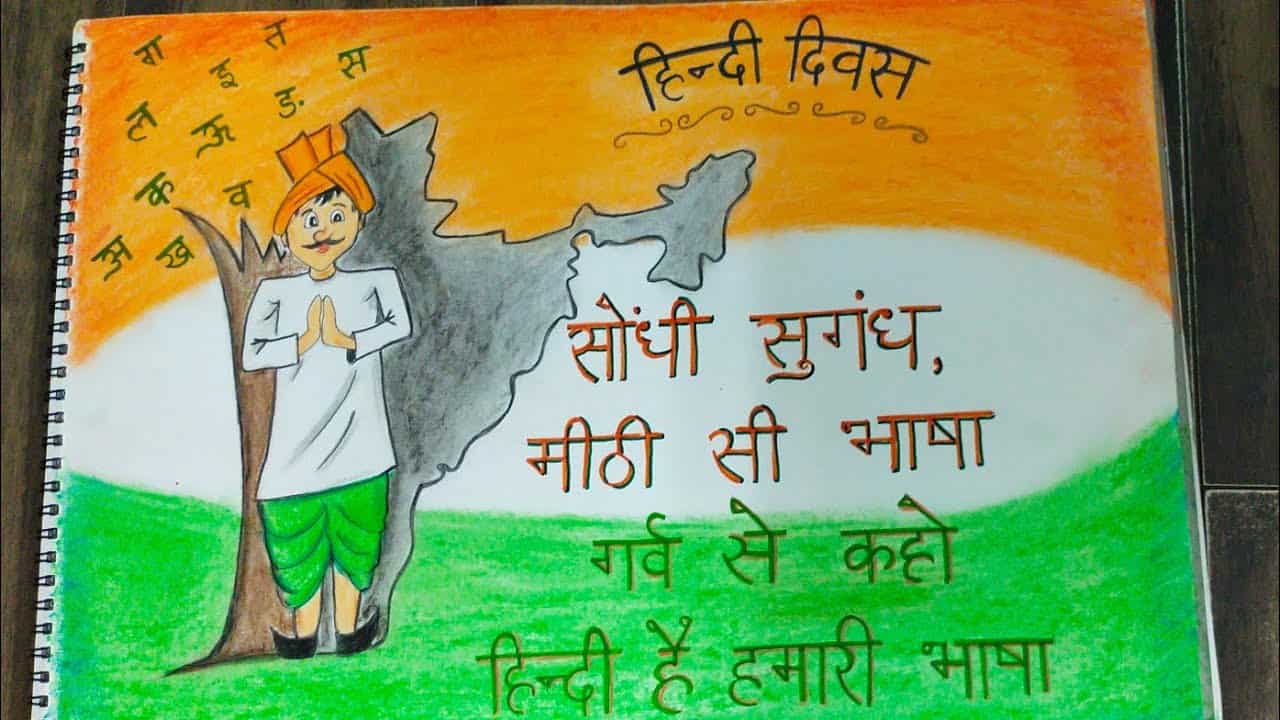 ग त
इ स
ल ऊ ङ
क व
अ ख
हिन्दी दिवस
सोंधी सुगंध,
मीठी सी भाषा
गर्व से कहो
हिन्दी है हमारी भाषा